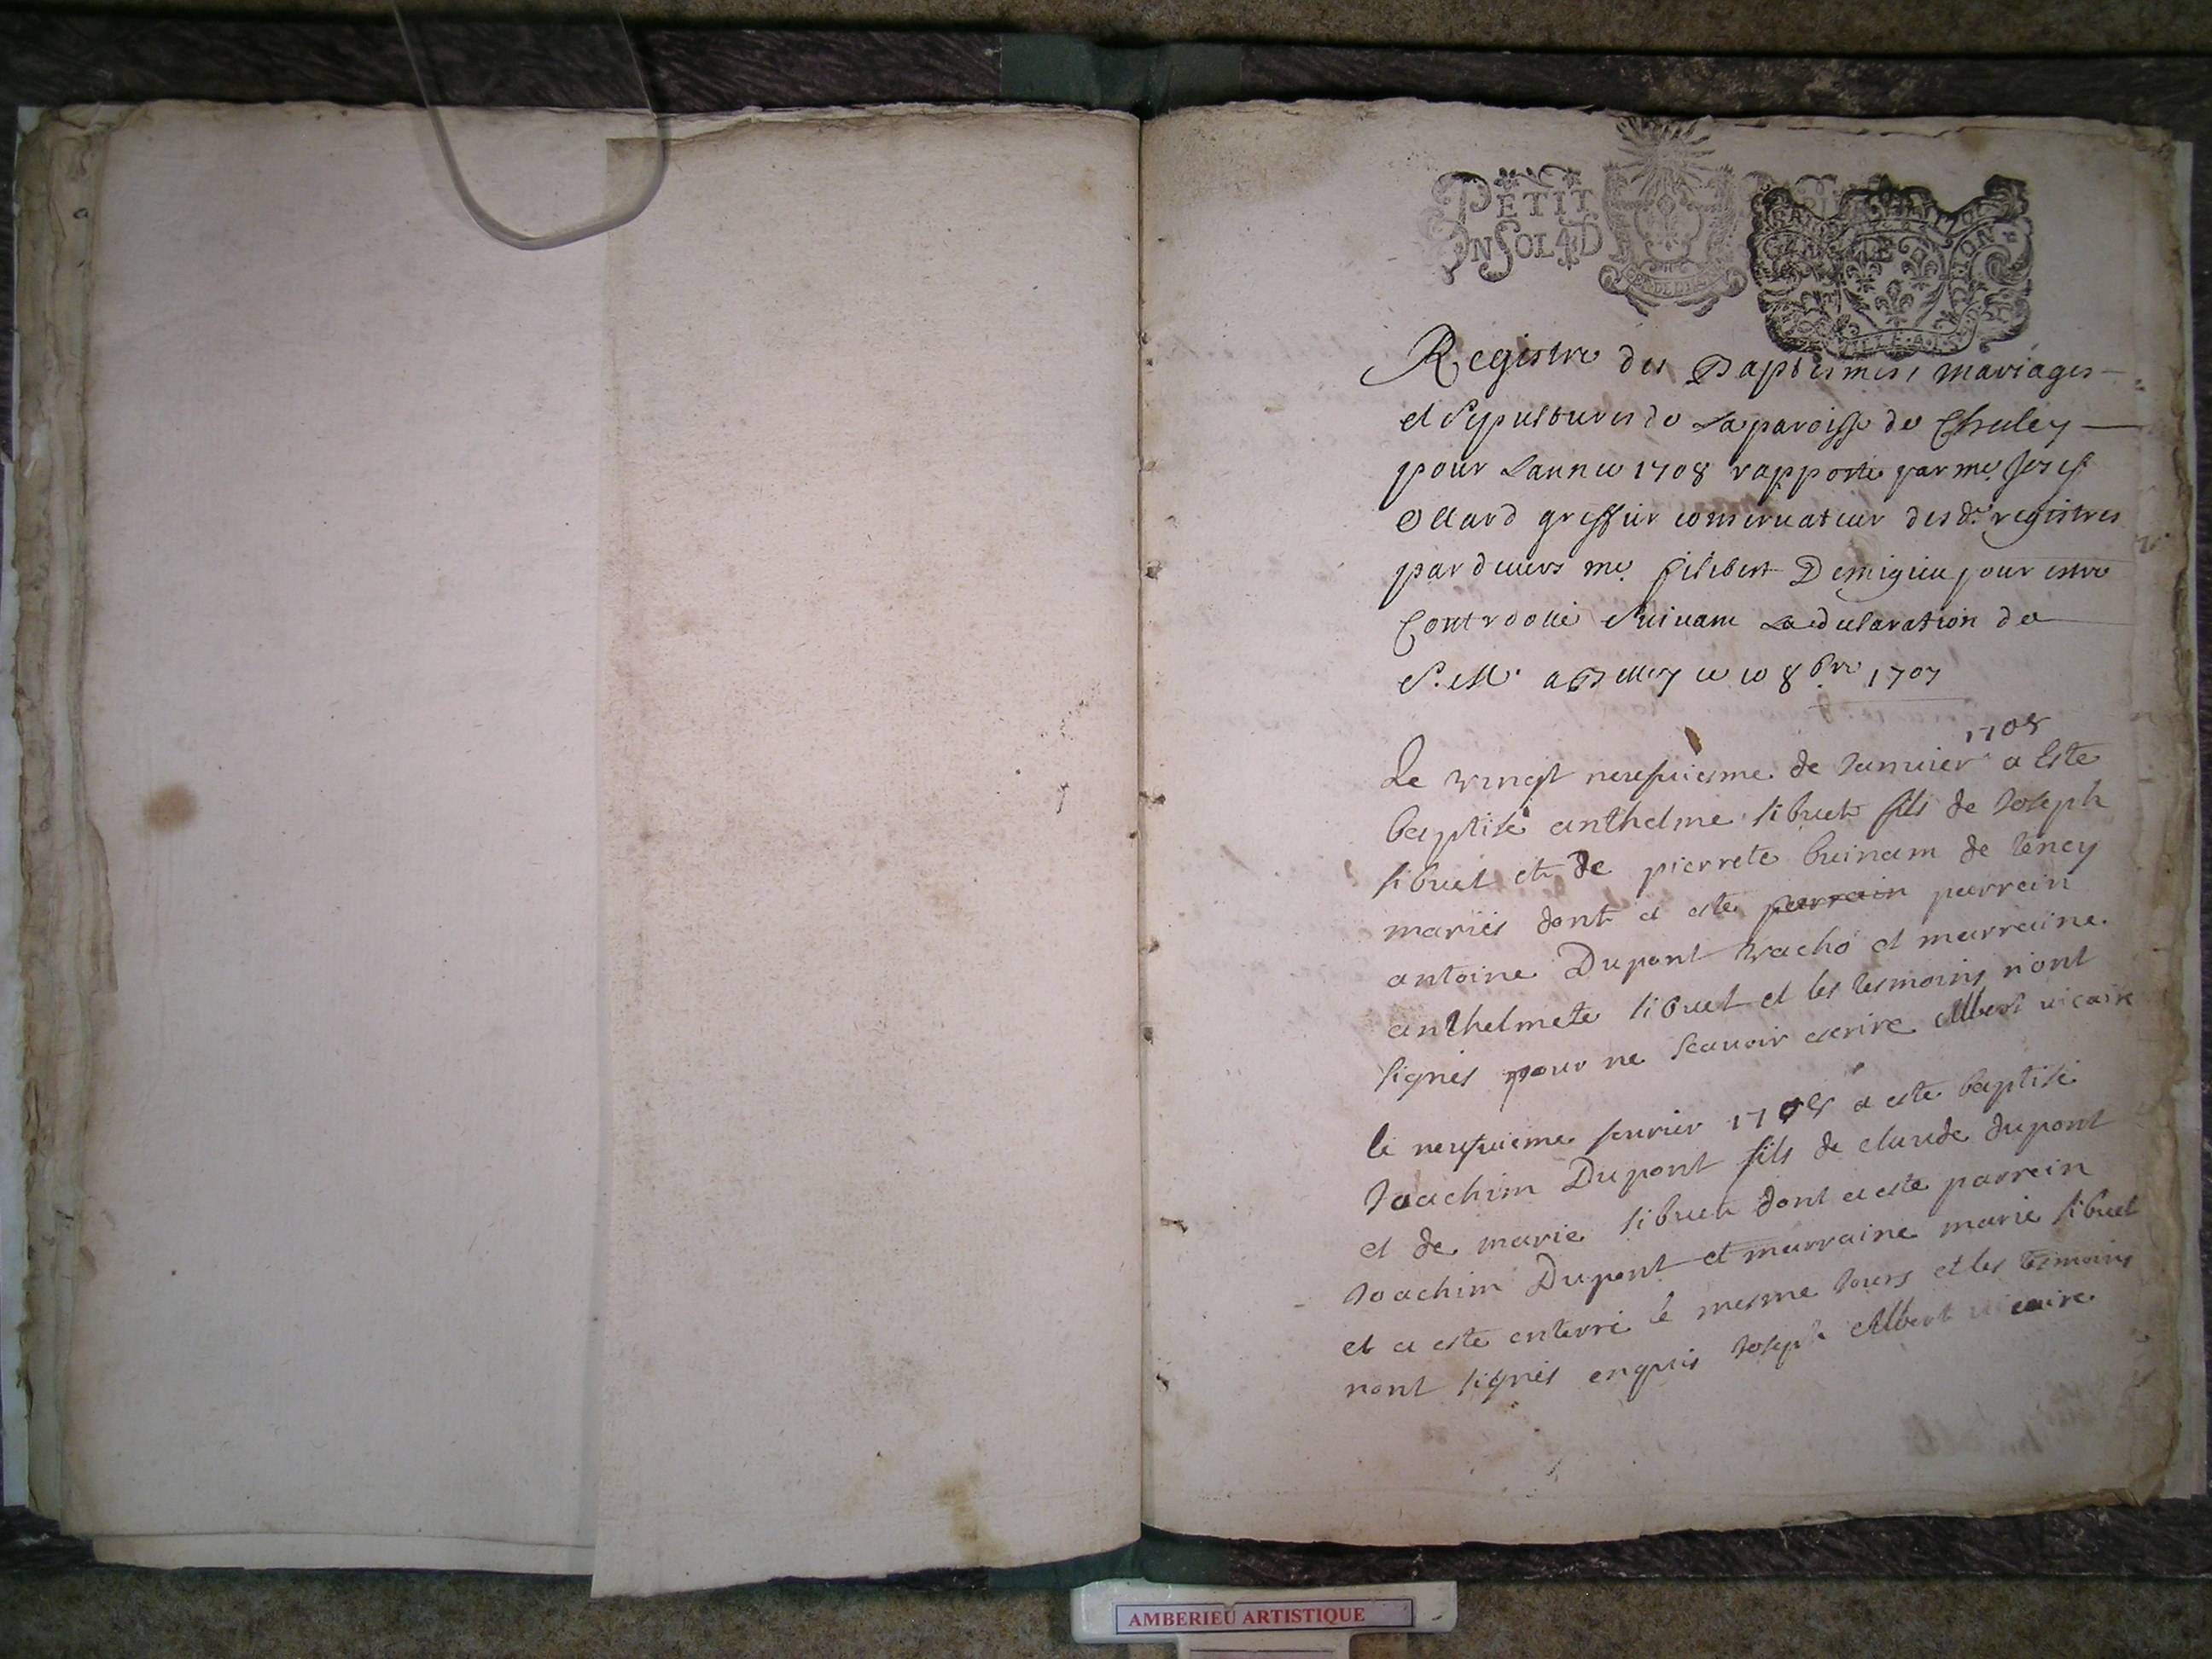 PETIT
UN SOL 4D
Registre des Baptesmes, mariages
et Sepultures de La paroisse de Chaley
pour Lannee 1708 rapporté par me Josef
Ollard greffier conservateur desd. registres
pardevers me filibert Demigieu pour estre
Controollé Suivant La declaration de
S. M. a Belley ce 10 8bre 1707
1708
Le vingt neufuiesme de Januier a Este
baptisé anthelme sibuet fils de Joseph
sibuet et de pierrete buinam de tency
mariés dont a este parrain parrein
antoine Dupont vacho et marraine
anthelmete sibuet et les tesmoins n'ont
signés pour ne scauoir escrire Albert uicaire
le neufuieme feurier 1708 a este baptisé
Joachim Dupont fils de claude dupont
et de marie sibuet dont a este parrein
Joachim Dupont et marraine marie sibuet
et a este enterré le mesme Jours et les tesmoins
nont signés enquis Joseph Albert uicaire
AMBERIEU ARTISTIQUE